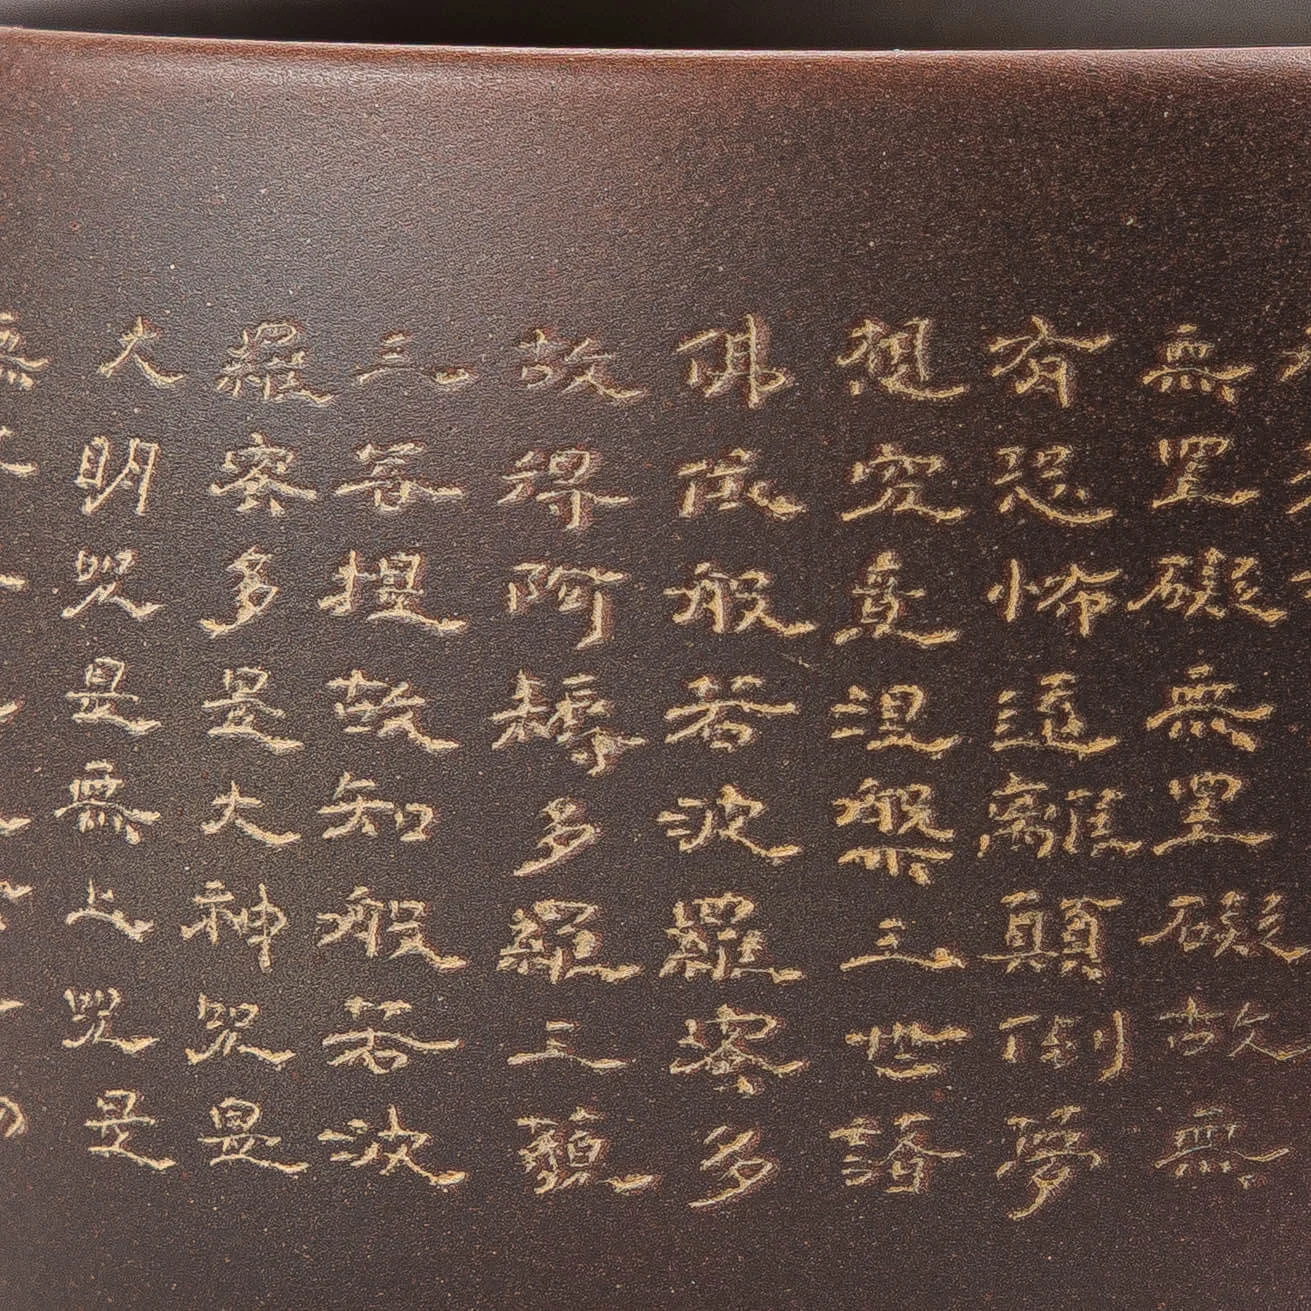 無罣礙無罣礙故無
有恐怖遠離顛倒夢
想究竟涅槃三世諸
佛依般若波羅蜜多
故得阿耨多羅三藐
三菩提故知般若波
羅蜜多是大神咒是
大明咒是無上咒是